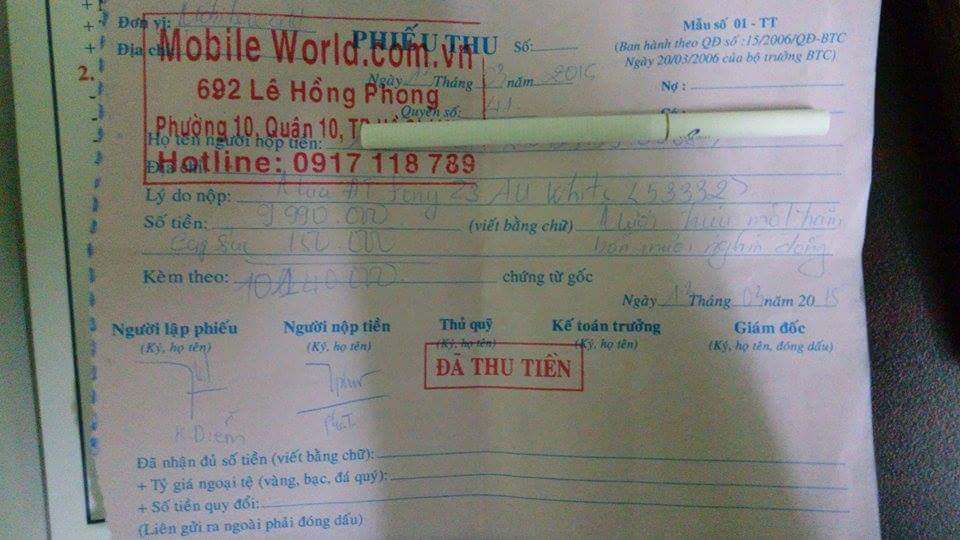 Đơn vị:
Địa chỉ:
Mobile World.com.vn
692 Lê Hồng Phong
Phường 10, Quận 10, TP
Hotline: 0917 118 789
PHIẾU THU Số:
Mẫu số 01 - TT
(Ban hành theo QĐ số :15/2006/QĐ-BTC
Ngày 20/03/2006 của bộ trưởng BTC)
Ngày 13 Tháng 03 năm 2015
Nợ :
Quyển số: 41
Họ tên người nộp tiền:
Địa chỉ:
Lý do nộp: Mua ĐT Sony Z3 AU White (53332)
Số tiền: 9 990.000 (viết bằng chữ) Mười triệu một trăm
Cap Sac 150.000 bốn mươi nghìn đồng
Kèm theo: 10 140.000 chứng từ gốc
Ngày 13 Tháng 03 năm 2015
Người lập phiếu
(Ký, họ tên)
Người nộp tiền
(Ký, họ tên)
Thủ quỹ
(Ký, họ tên)
Kế toán trưởng
(Ký, họ tên)
Giám đốc
(Ký, họ tên, đóng dấu)
ĐÃ THU TIỀN
K Diễm
Đã nhận đủ số tiền (viết bằng chữ):
+ Tỷ giá ngoại tệ (vàng, bạc, đá quý):
+ Số tiền quy đổi:
(Liên gửi ra ngoài phải đóng dấu)
2.